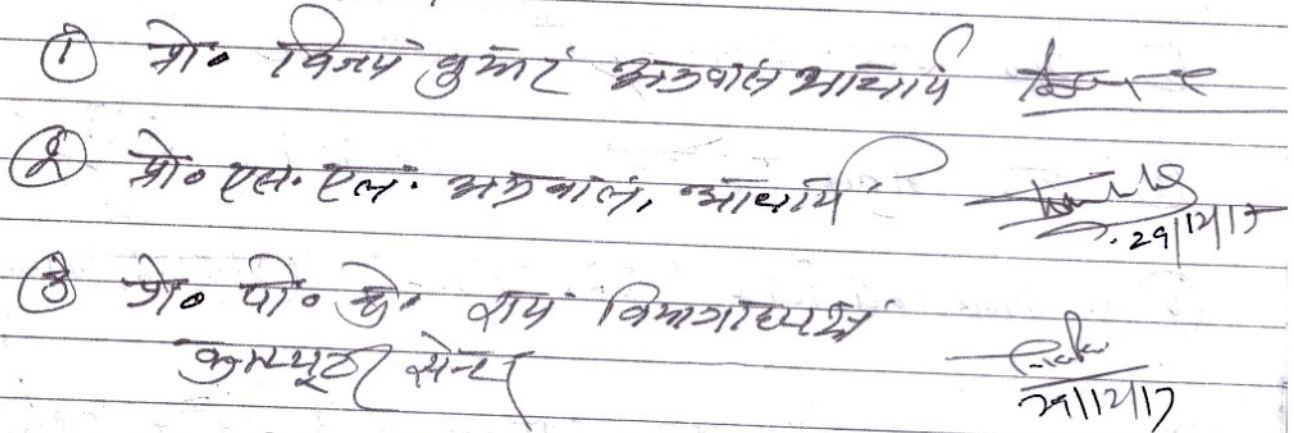 ① प्रो० विजय कुमार अग्रवाल आचार्य
② प्रो० एस. एल. अग्रवाल, आचार्य
29/12/17
③ प्रो० पी० के० राय विभागाध्यक्ष
कम्प्यूटर सेन्टर
29/12/17